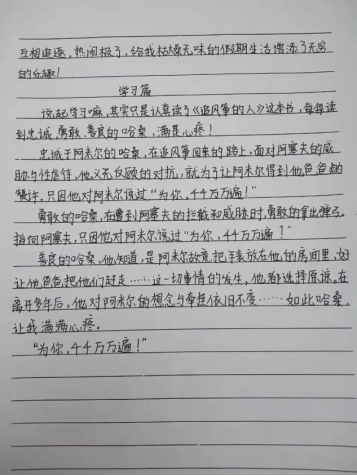 互相追逐,热闹极了,给我枯燥无味的假期生活增添了无穷
的乐趣!
学习篇
说起学习嘛,其实只是认真读了《追风筝的人》这本书,每每读
到忠诚、勇敢、善良的哈桑,满是心疼!
忠诚于阿米尔的哈桑,在追风筝回来的路上,面对阿塞夫的威
胁与性虐待,他义无反顾的对抗,就为了让阿米尔得到他爸爸的
赞许,只因他对阿米尔说过“为你,千千万万遍!”
勇敢的哈桑,在遭到阿塞夫的拦截和威胁时,勇敢的拿出弹弓,
指向阿塞夫,只因他对阿米尔说过“为你,千千万万遍?”
善良的哈桑,他知道,是阿米尔故意把手表放在他的房间里,好
让他爸爸把他们赶走……这一切事情的发生,他都选择原谅。在
离开多年后,他对阿米尔的想念与牵挂依旧不变……如此哈桑,
让我满满心疼。
“为你,千千万万遍!”